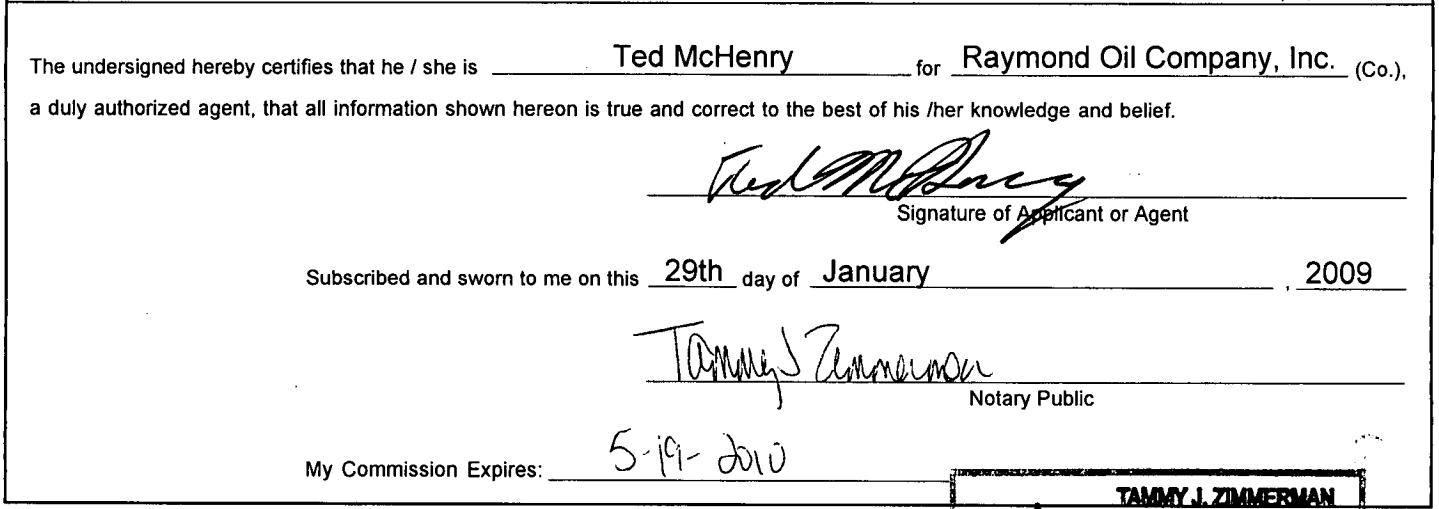 The undersigned hereby certifies that he / she is Ted McHenry for Raymond Oil Company, Inc. (Co.),
a duly authorized agent, that all information shown hereon is true and correct to the best of his /her knowledge and belief.
Ted McHenry
Signature of Applicant or Agent
Subscribed and sworn to me on this 29th day of January , 2009
Tammy J Zimmerman
Notary Public
My Commission Expires: 5-19-2010
TAMMY J. ZIMMERMAN